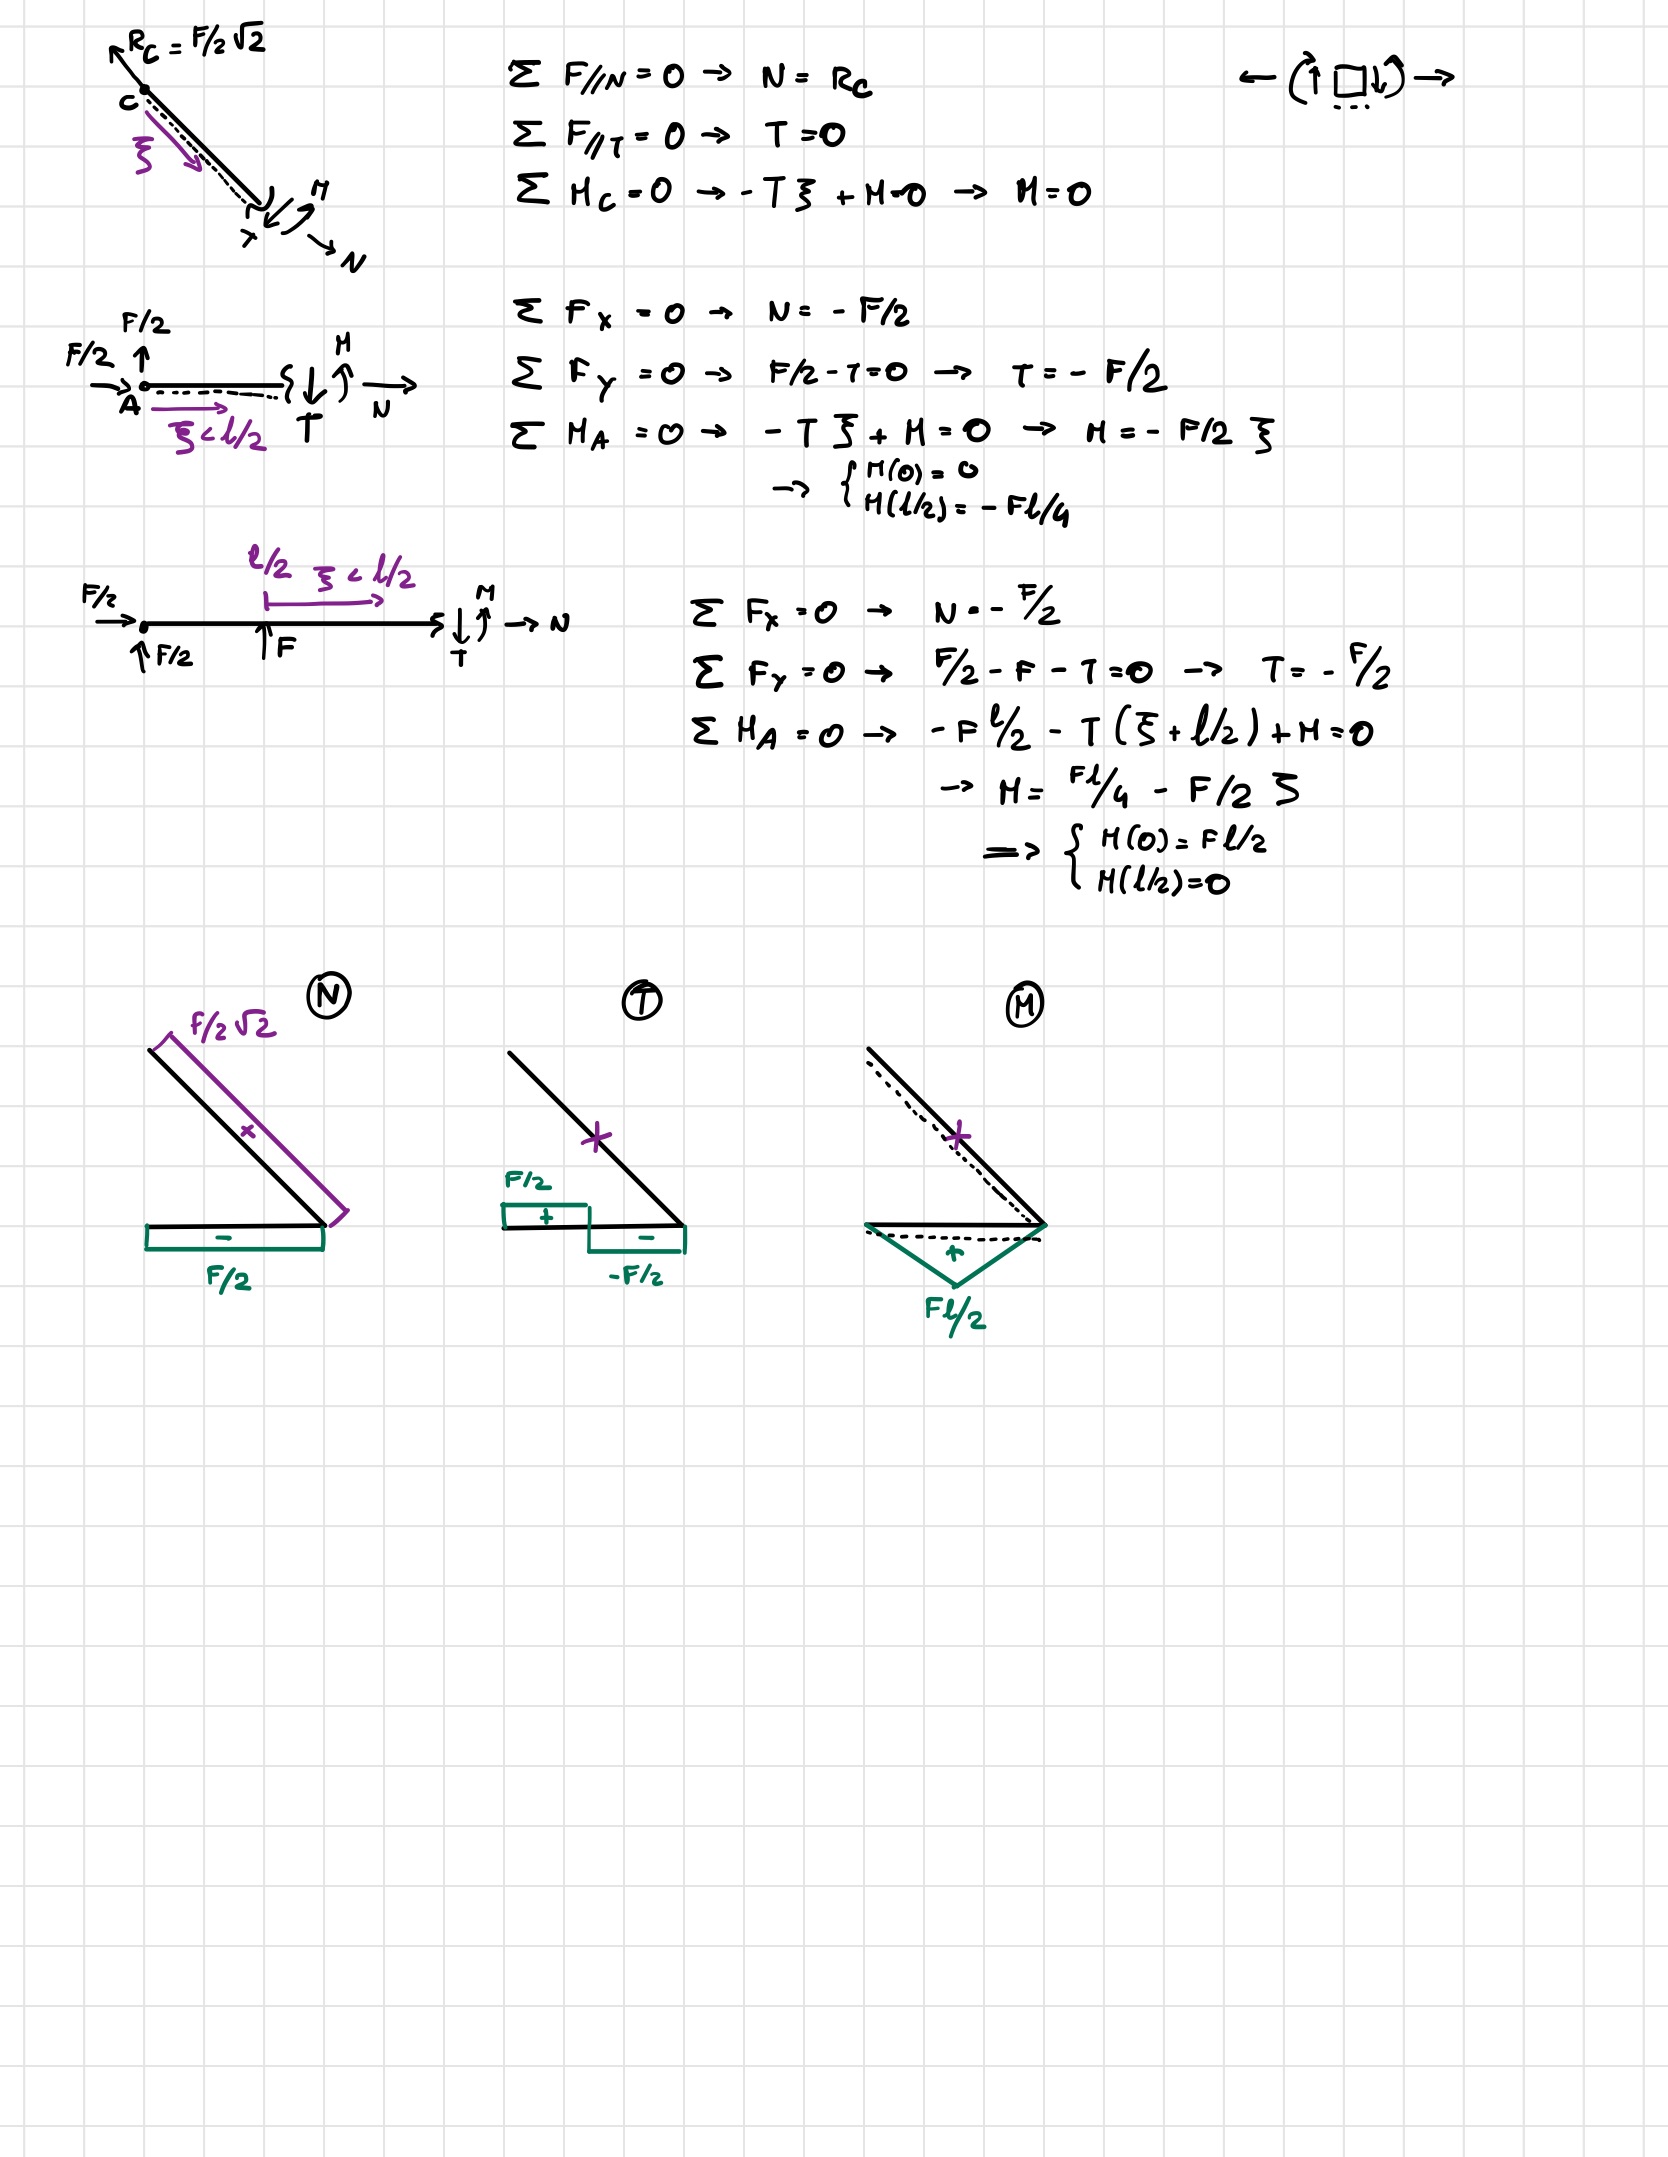 R_C = F/2 √2
C
ξ
M
T
N
Σ F//N = 0 → N = R_C
Σ F//T = 0 → T = 0
Σ M_C = 0 → - T ξ + M = 0 → M = 0
F/2
F/2
A
ξ < l/2
T
M
N
Σ F_x = 0 → N = - F/2
Σ F_y = 0 → F/2 - T = 0 → T = - F/2
Σ M_A = 0 → - T ξ + M = 0 → M = - F/2 ξ
→ { M(0) = 0
M(l/2) = - Fl/4
l/2 ξ < l/2
F/2
F/2
F
T
M
→ N
Σ F_x = 0 → N = - F/2
Σ F_y = 0 → F/2 - F - T = 0 → T = - F/2
Σ M_A = 0 → - F l/2 - T (ξ + l/2) + M = 0
→ M = Fl/4 - F/2 ξ
⇒ { M(0) = Fl/2
M(l/2) = 0
N
F/2 √2
+
-
F/2
T
F/2
+
-
-F/2
M
+
Fl/2